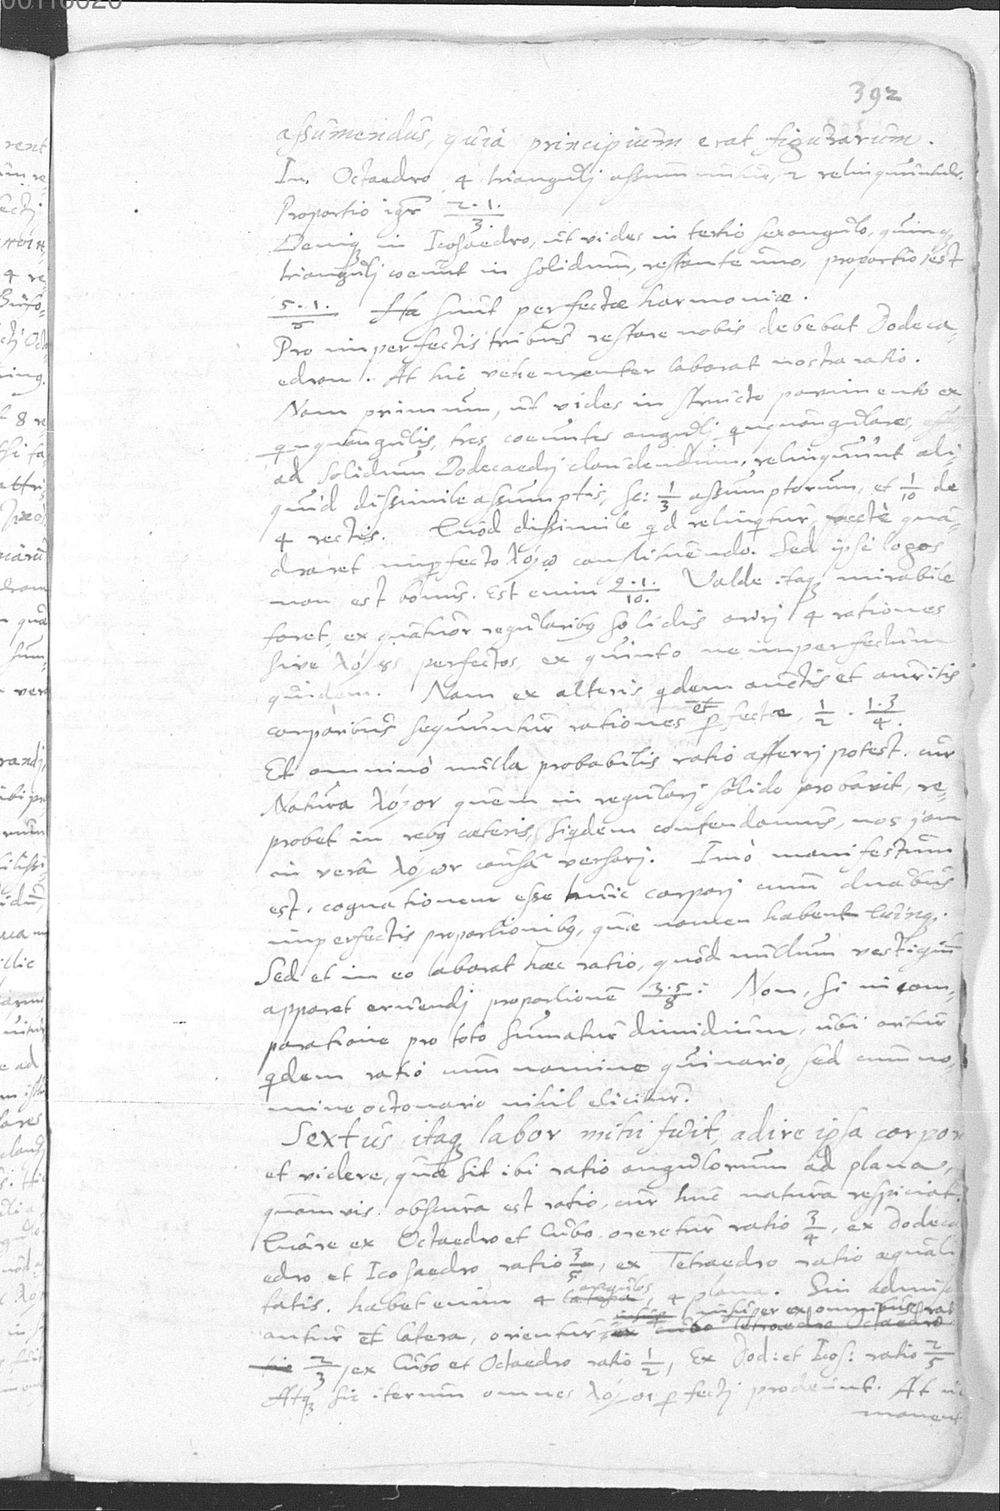 392
assumendus, quia principium erat figurarum.
In Octaedro 4 trianguli assumuntur, 2 relinquuntur.
Proportio igr 2.1./3.
Deniq in Icosaedro, ut vides in tertio sexangulo, quinq
trianguli coeunt in solidum, restante uno, proportio est
5.1./6 Hae sunt perfectae harmoniae.
Pro imperfectis tribus restare nobis debebat Dodeca-
edron. At hic vehementer laborat nostra ratio.
Nam primum, ut vides in structo pavimento ex
quinquangulis, tres coeuntes anguli quinquangulares,
ad solidum Dodecaedri claudendum, relinquunt ali-
quid dissimile assumptis, sc: 1/3 assumptorum, et 1/10 de
4 rectis. Quod dissimile qd relinqitur, recte qua-
draret imperfecto λόγῳ constituendo. Sed ipse logos
non est bonus. Est enim 9.1./10. Valde itaq mirabile
foret, ex quatuor regularibq solidis oriri 4 rationes
sive λόγος perfectos, ex quinto ne imperfectum
quidem. Nam ex alteris qdem auctis et auritis
corporibus sequuntur rationes perfectae, 1/2 . 1.3/4.
Et omnino nulla probabilis ratio afferri potest. cur
Natura λόγον quem in regulari solido probavit, re-
probet in rebq caeteris, siqdem contendamus, nos jam
in vera λόγων causa versari. Imo manifestum
est, cognationem esse huic corpori cum duabus
imperfectis proportionibq, quae nomen habent quinq.
Sed et in eo laborat haec ratio, quod nullum vestigium
apparet eruendi proportionem 3.5/8: Non, si in com-
paratione pro toto sumatur dimidium, ubi oritur
qdem ratio cum nomine quinario, sed cum no-
mine octonario nihil elicitur.
Sextus itaq labor mihi fuit, adire ipsa corpor
et videre, quae sit ibi ratio angulorum ad plana,
quamvis obscura est ratio, cur huc natura respiciat.
Quare ex Octaedro et Cubo oreretur ratio 3/4, ex Dodeca
edro et Icosaedro ratio 3/5, ex Tetraedro ratio aequali
tatis. habet enim 4 latera angulos, 4 plana. Sin admis
antur et latera, orientur insuper ex omnibus rat
ex cubo Tetraedro Octaedro
2/3, ex Cubo et Octaedro ratio 1/2, Ex Dod: et Icos: ratio 2/5
Atq sic iterum omnes λόγοι perfecti prodeunt. At
manent